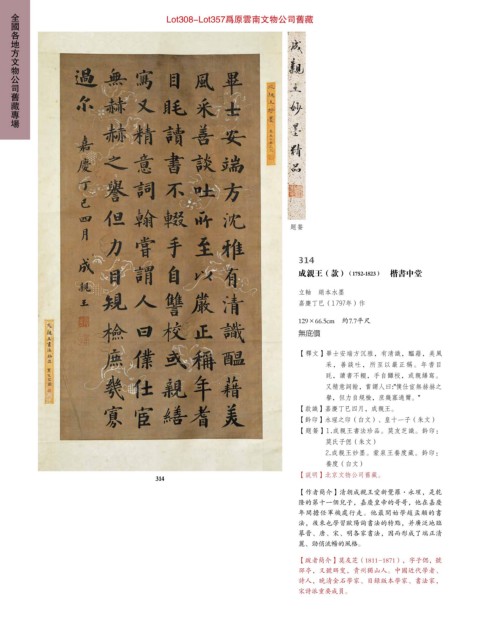 Lot308-Lot357爲原雲南文物公司舊藏
全國各地方文物公司舊藏專場
畢士安端方沈雅有清識醞藉美
風采善談吐所至以嚴正稱年耆
目眊讀書不輟手自讐校或親繕
寫又精意詞翰嘗謂人曰僕仕宦
無赫赫之譽但力自規檢庶幾寡
過尔
嘉慶丁巳四月
成親王
成親王妙墨精品
題簽
314
314
成親王（款）(1752-1823) 楷書中堂
立軸 絹本水墨
嘉慶丁巳（1797年）作
129×66.5cm 約7.7平尺
無底價
【釋文】畢士安端方沉雅，有清識，醞藉，美風
采，善談吐，所至以嚴正稱。年耆目
眊，讀書不輟，手自讎校，或親繕寫。
又精意詞翰，嘗謂人曰:“僕仕宦無赫赫之
譽，但力自規檢，庶幾寡過爾。”
【款識】嘉慶丁巳四月，成親王。
【鈐印】永瑆之印（白文）、皇十一子（朱文）
【題簽】1.成親王書法珍品。莫友芝識。鈐印：
莫氏子偲（朱文）
養度（白文）
【說明】北京文物公司舊藏。
【作者簡介】清朝成親王愛新覺羅·永瑆，是乾
隆的第十一個兒子，嘉慶皇帝的哥哥，他在嘉慶
年間擔任軍機處行走。他最開始學趙孟頫的書
法，後來也學習歐陽詢書法的特點，并廣泛地臨
摹晉、唐、宋、明各家書法，因而形成了端正清
麗、勁俏流暢的風格。
【鑑者簡介】莫友芝（1811-1871），字子偲，號
郘亭，又號眲叟，貴州獨山人。中國近代學者、
詩人，晚清金石學家、目錄版本學家、書法家，
宋詩派重要成員。